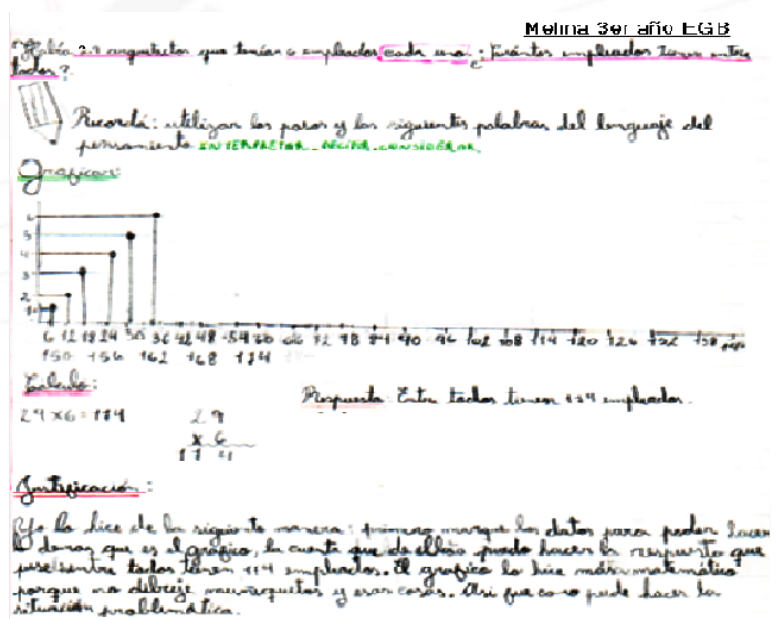 Melina 3er año EGB
Había 29 arquitectos que tenían 6 empleados cada uno ¿Cuántos empleados tienen entre
todos?
Recordá: utilizar los pasos y las siguientes palabras del lenguaje del
pensamiento INTERPRETAR DECIDIR CONSIDERAR
Graficar:
6
5
4
3
2
1
6 12 18 24 30 36 42 48 54 60 66 72 78 84 90 96 102 108 114 120 126 132 138
150 156 162 168 174
Cálculo:
Respuesta: Entre todos tienen 174 empleados.
29 x 6 = 174
29
x 6
174
Justificación:
Yo lo hice de la siguiente manera: primero marqué los datos para poder hacer
lo demas que es el gráfico, la cuenta que de ello puedo hacer la respuesta que
puse entre todos tienen 174 empleados. El gráfico lo hice más matemático
porque no dibujé muñequitos y esas cosas. Asi fue como pude hacer la
situación problemática.